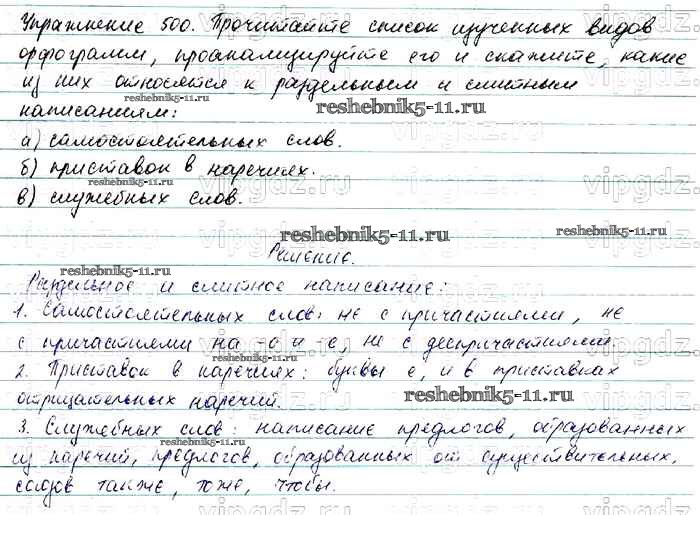 Упражнение 500. Прочитайте список изученных видов
орфограмм, проанализируйте его и скажите, какие
из них относятся к раздельным и слитным
написаниям:
а) самостоятельных слов.
б) приставок в наречиях.
в) служебных слов.
Решение.
Раздельное и слитное написание:
1. Самостоятельных слов: не с причастиями, не
с причастиями на -о и -е, не с деепричастиями.
2. Приставок в наречиях: буквы е, и в приставках
отрицательных наречий.
3. Служебных слов: написание предлогов, образованных
из наречий, предлогов, образованных от существительных,
союзов также, тоже, чтобы.
reshebnik5-11.ru
reshebnik5-11.ru
reshebnik5-11.ru
reshebnik5-11.ru
reshebnik5-11.ru
reshebnik5-11.ru
reshebnik5-11.ru
reshebnik5-11.ru
reshebnik5-11.ru
vipgdz.ru